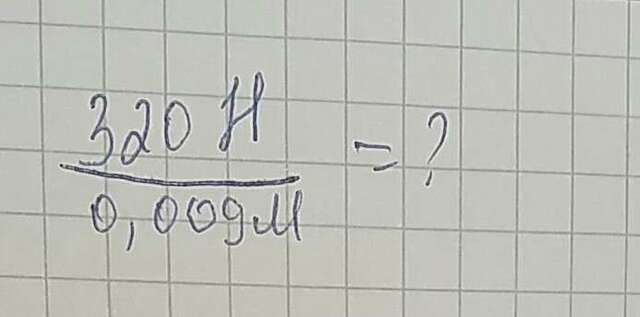 320 Н
0,009м
= ?